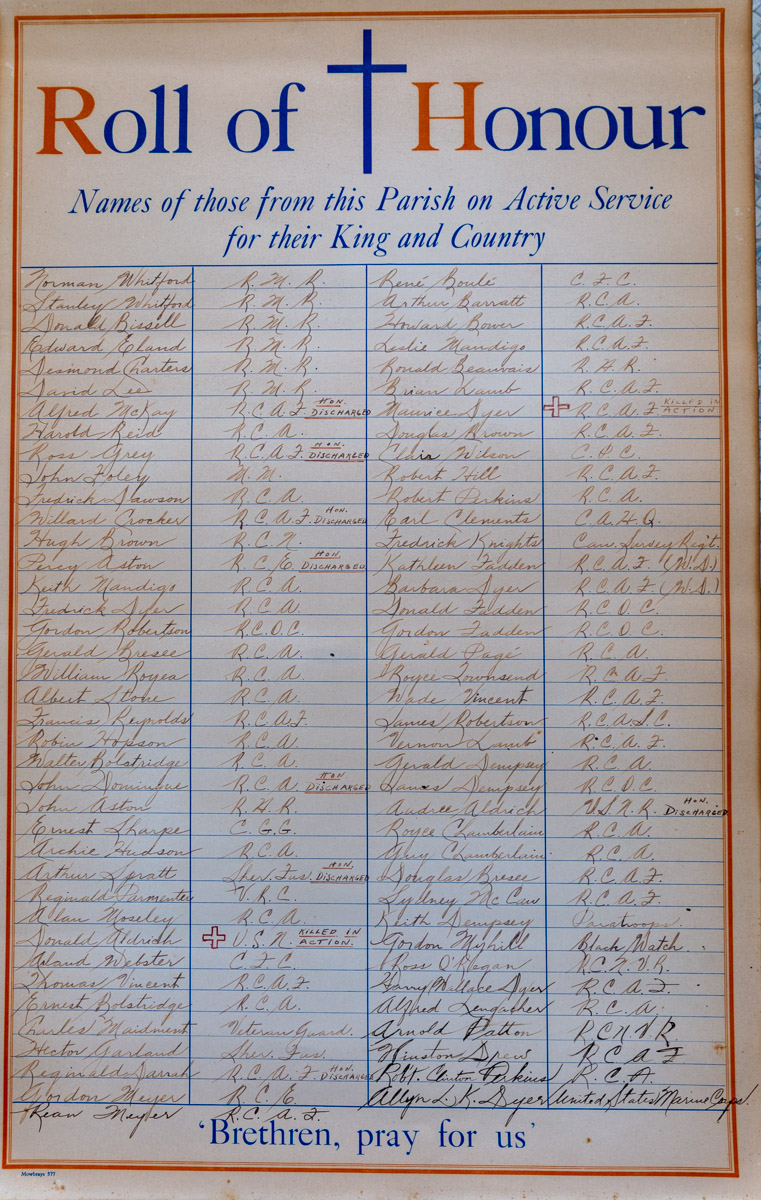 Roll of Honour
Names of those from this Parish on Active Service
for their King and Country
Norman Whitford R. M. R.
Stanley Whitford R. M. R.
Donald Bissell R. M. R.
Edward Eland R. M. R.
Desmond Charters R. M. R.
David Lee R. M. R.
Alfred McKay R.C.A.F. HON. DISCHARGED
Harold Reid R.C.A.
Ross Grey R.C.A.F. HON. DISCHARGED
John Foley M. M.
Fredrick Dawson R.C.A.
Willard Crocker R.C.A.F. HON. DISCHARGED
Hugh Brown R.C.N.
Percy Aston R.C.E. HON. DISCHARGED
Keith Mandigo R.C.A.
Fredrick Dyer R.C.A.
Gordon Robertson R.C.O.C.
Gerald Bresee R.C.A.
William Royea R.C.A.
Albert Stone R.C.A.
Francis Reynolds R.C.A.F.
Robin Hopson R.C.A.
Walter Bolstridge R.C.A.
John Dominque R.C.A. HON DISCHARGED
John Aston R.H.R.
Ernest Sharpe C.G.G.
Archie Hudson R.C.A.
Arthur Spratt Sher. Fus. HON. DISCHARGED
Reginald Parmenter V.R.C.
Alan Moseley R.C.A.
Donald Aldrich U.S.N. KILLED IN ACTION.
Aland Webster C.F.C.
Thomas Vincent R.C.A.F.
Ernest Bolstridge R.C.A.
Charles Maidment Veteran Guard.
Hector Garland Sher. Fus.
Reginald Darrah R.C.A.F. HON. DISCHARGED
Gordon Meyer R.C.E.
Kean Meyer R.C.A.F.
René Boulé C.F.C.
Arthur Barratt R.C.A.
Howard Bower R.C.A.F.
Leslie Mandigo R.C.A.F.
Ronald Beauvais R.H.R.
Brian Lamb R.C.A.F.
Maurice Dyer R.C.A.F. KILLED IN ACTION.
Douglas Brown R.C.A.F.
Clair Wilson C.P.C.
Robert Hill R.C.A.F.
Robert Perkins R.C.A.
Earl Clements C.A.H.Q.
Fredrick Knights Can. Survey Regt.
Kathleen Fadden R.C.A.F. (W.D.)
Barbara Dyer R.C.A.F. (W.D.)
Donald Fadden R.C.O.C.
Gordon Fadden R.C.O.C.
Gerald Pagé R.C.A.
Royce Townsend R.C.A.F.
Wade Vincent R.C.A.F.
James Robertson R.C.A.S.C.
Vernon Lamb R.C.A.F.
Gerald Dempsey R.C.A.
James Dempsey R.C.O.C.
Audree Aldrich U.S.N.R. HON. DISCHARGED
Royce Chamberlain R.C.A.
Guy Chamberlain R.C.A.
Douglas Bresee R.C.A.F.
Sydney McCaw R.C.A.F.
Keith Dempsey Paratroops.
Gordon Myhill Black Watch.
Ross O'Regan R.C.N.V.R.
Harry Wallace Dyer R.C.A.F.
Alfred R.C.A.
Arnold Patton R.C.N.V.R.
Winston Drew R.C.A.F
Robt. Clinton Perkins R.C.A.
Allyn L. K. Dyer United States Marine Corps.
'Brethren, pray for us'
Mowbrays 577